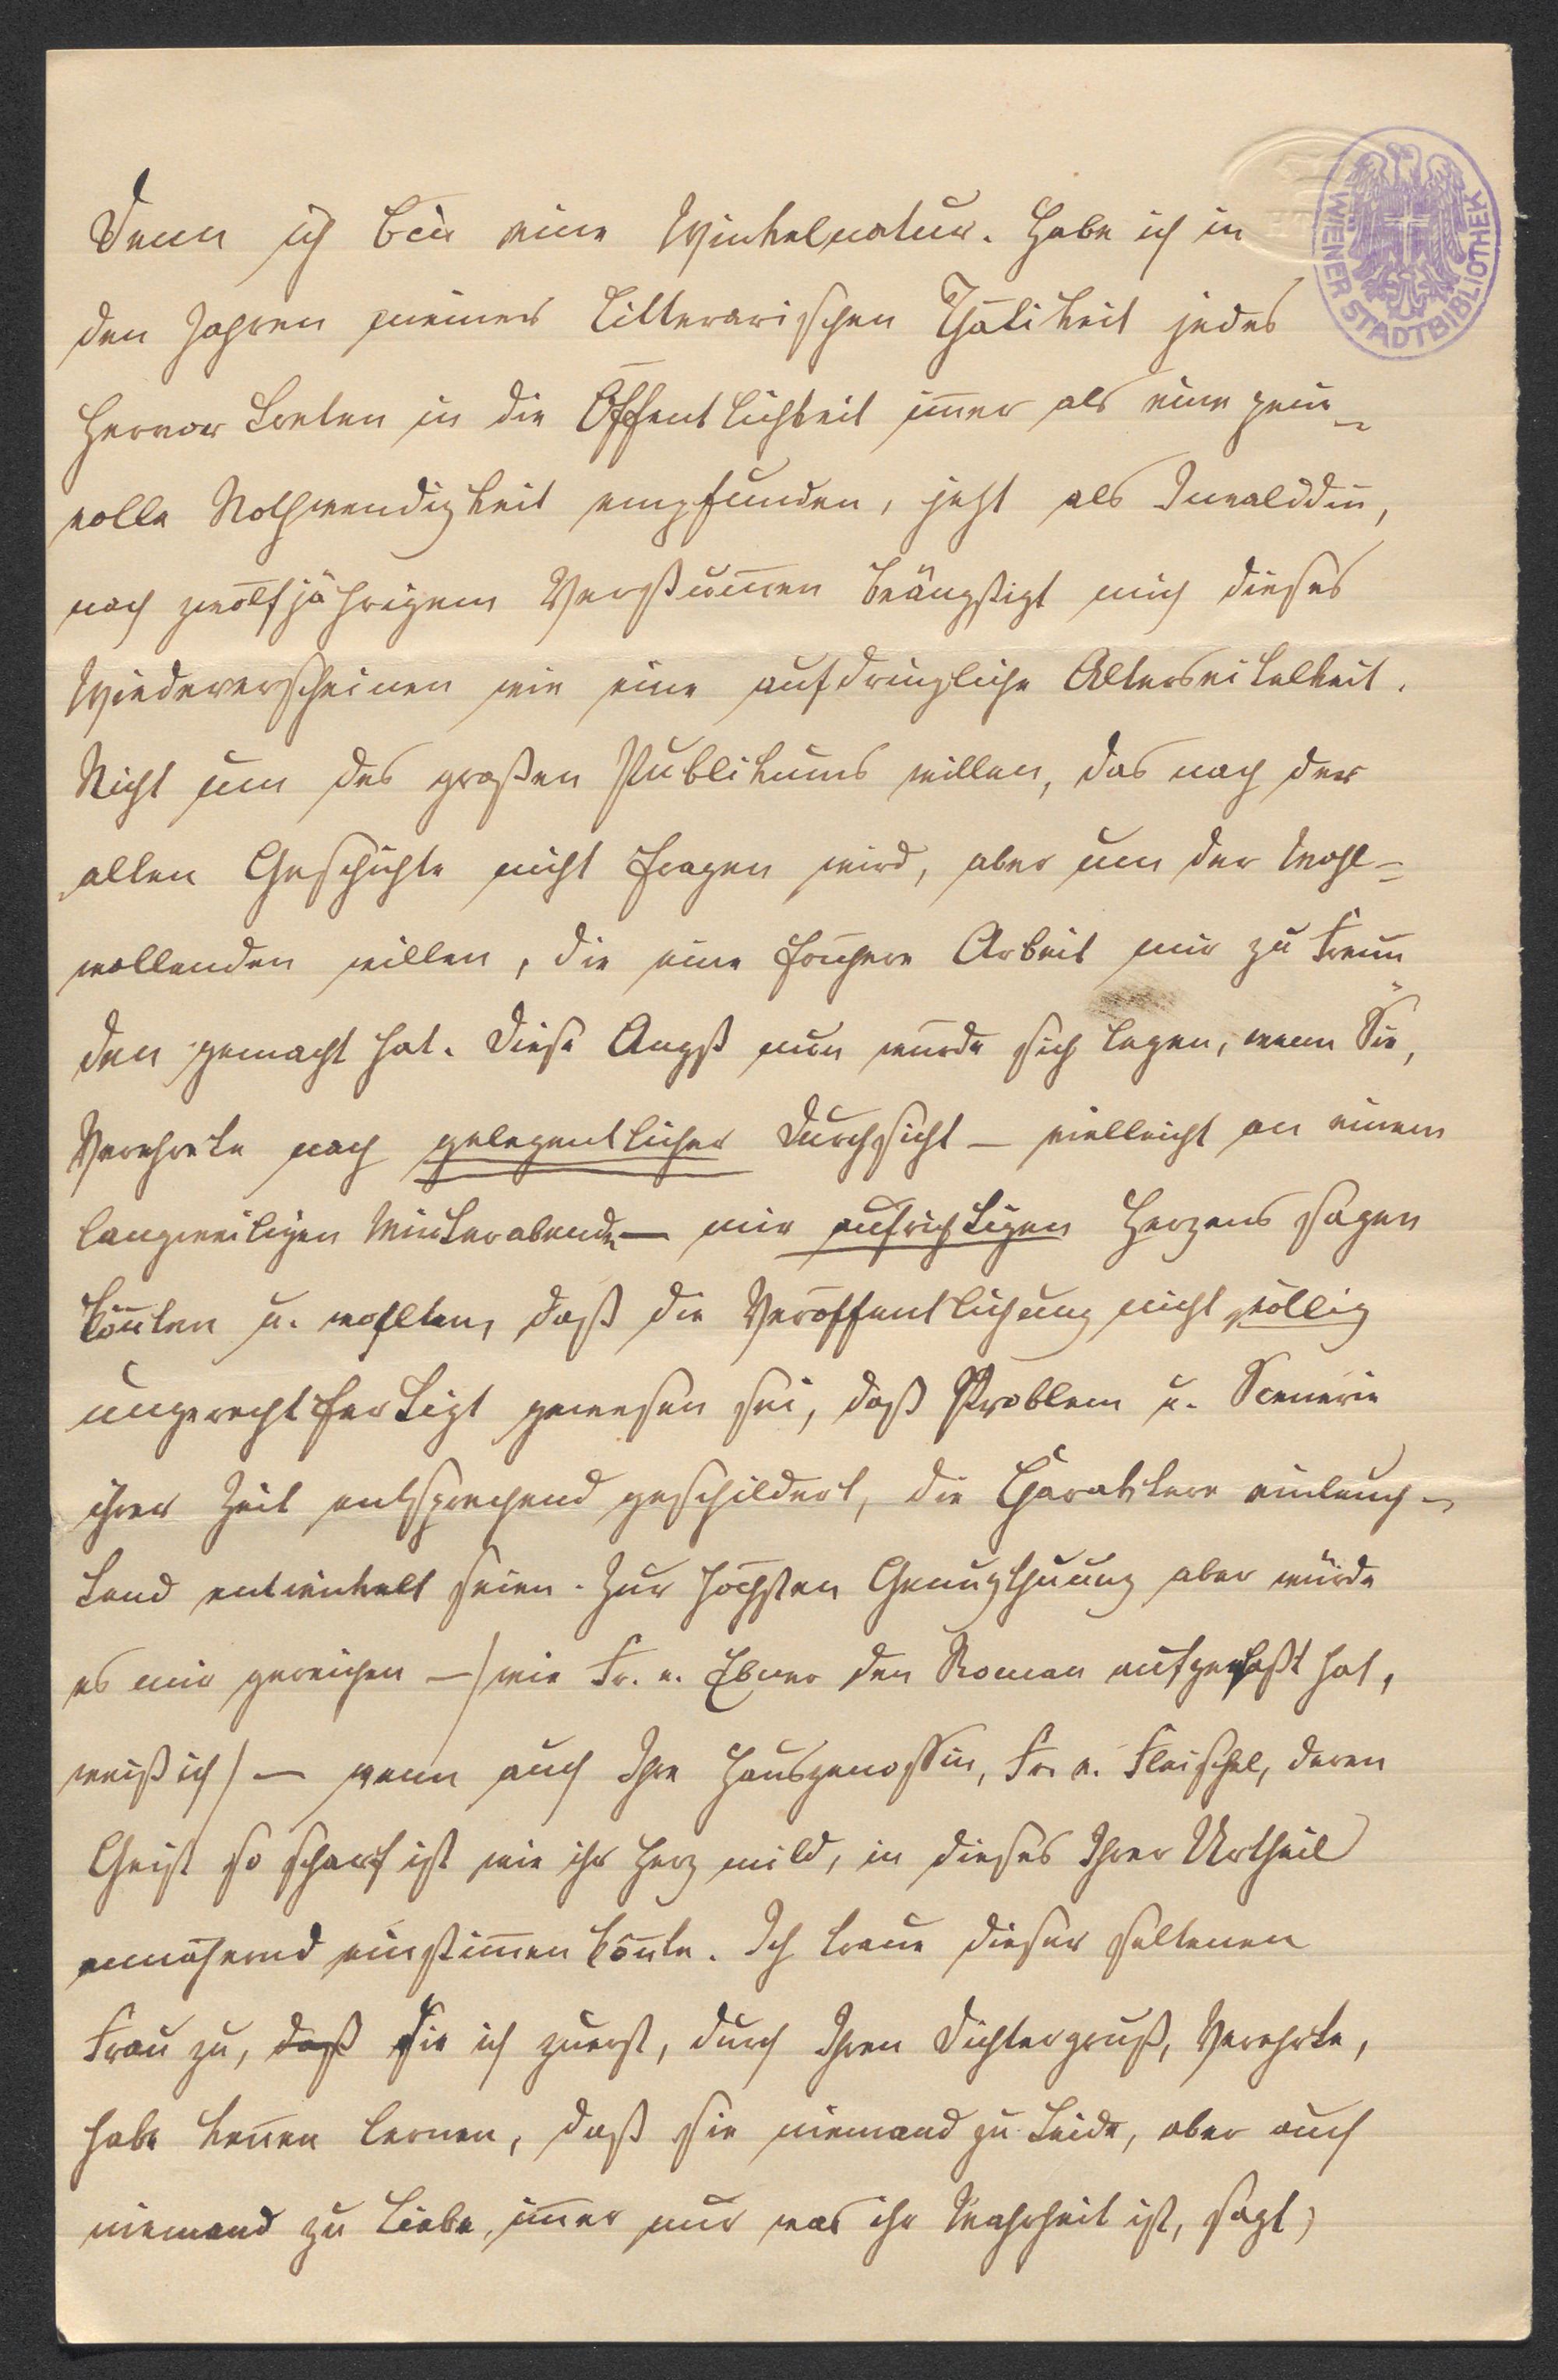 Denn ich bin eine Winkelnatur. Habe ich in
den Jahren meiner litterarischen Thätikeit jedes
Hervortreten in die Öffentlichkeit im̄er als eine pein-
volle Nothwendigkeit empfunden, jetzt als Invalidin,
nach zwölfjährigem Verstum̄en beängstigt mich dieses
Wiedererscheinen wie eine aufdringliche Alterseitelkeit.
Nicht um des großen Publikums willen, das nach der
alten Geschichte nicht fragen wird, aber um der Wohl-
wollenden willen, die eine frühere Arbeit mir zu Freun
den gemacht hat. Diese Angst nun würde sich legen, wenn Sie,
Verehrte nach gelegentlicher Durchsicht – vielleicht an einem
langweiligen Winterabende – mir aufrichtigen Herzens sagen
kön̄ten u. wollten, daß die Veröffentlichung nicht völlig
ungerechtfertigt gewesen sei, daß Problem u. Scenerie
ihrer Zeit entsprechend geschildert, die Charaktere einleuch-
tend entwickelt seien. Zur höchsten Genugthuung aber würde
es mir gereichen – (wie Fr. v. Ebner den Roman aufgefaßt hat,
weiß ich) – wenn auch Ihre Hausgenossin, Fr. v. Fleischel, deren
Geist so scharf ist wie ihr Herz mild, in dieses Ihrer Urtheil
annähernd einstim̄en kön̄te. Ich traue dieser seltenen
Frau zu, daß die ich zuerst, durch Ihren Dichtergruß, Verehrte,
habe ken̄en lernen, daß sie niemand zu Leide, aber auch
niemand zu Liebe, im̄er nur was ihr Wahrheit ist, sagt;
WIENER STADTBIBLIOTHEK